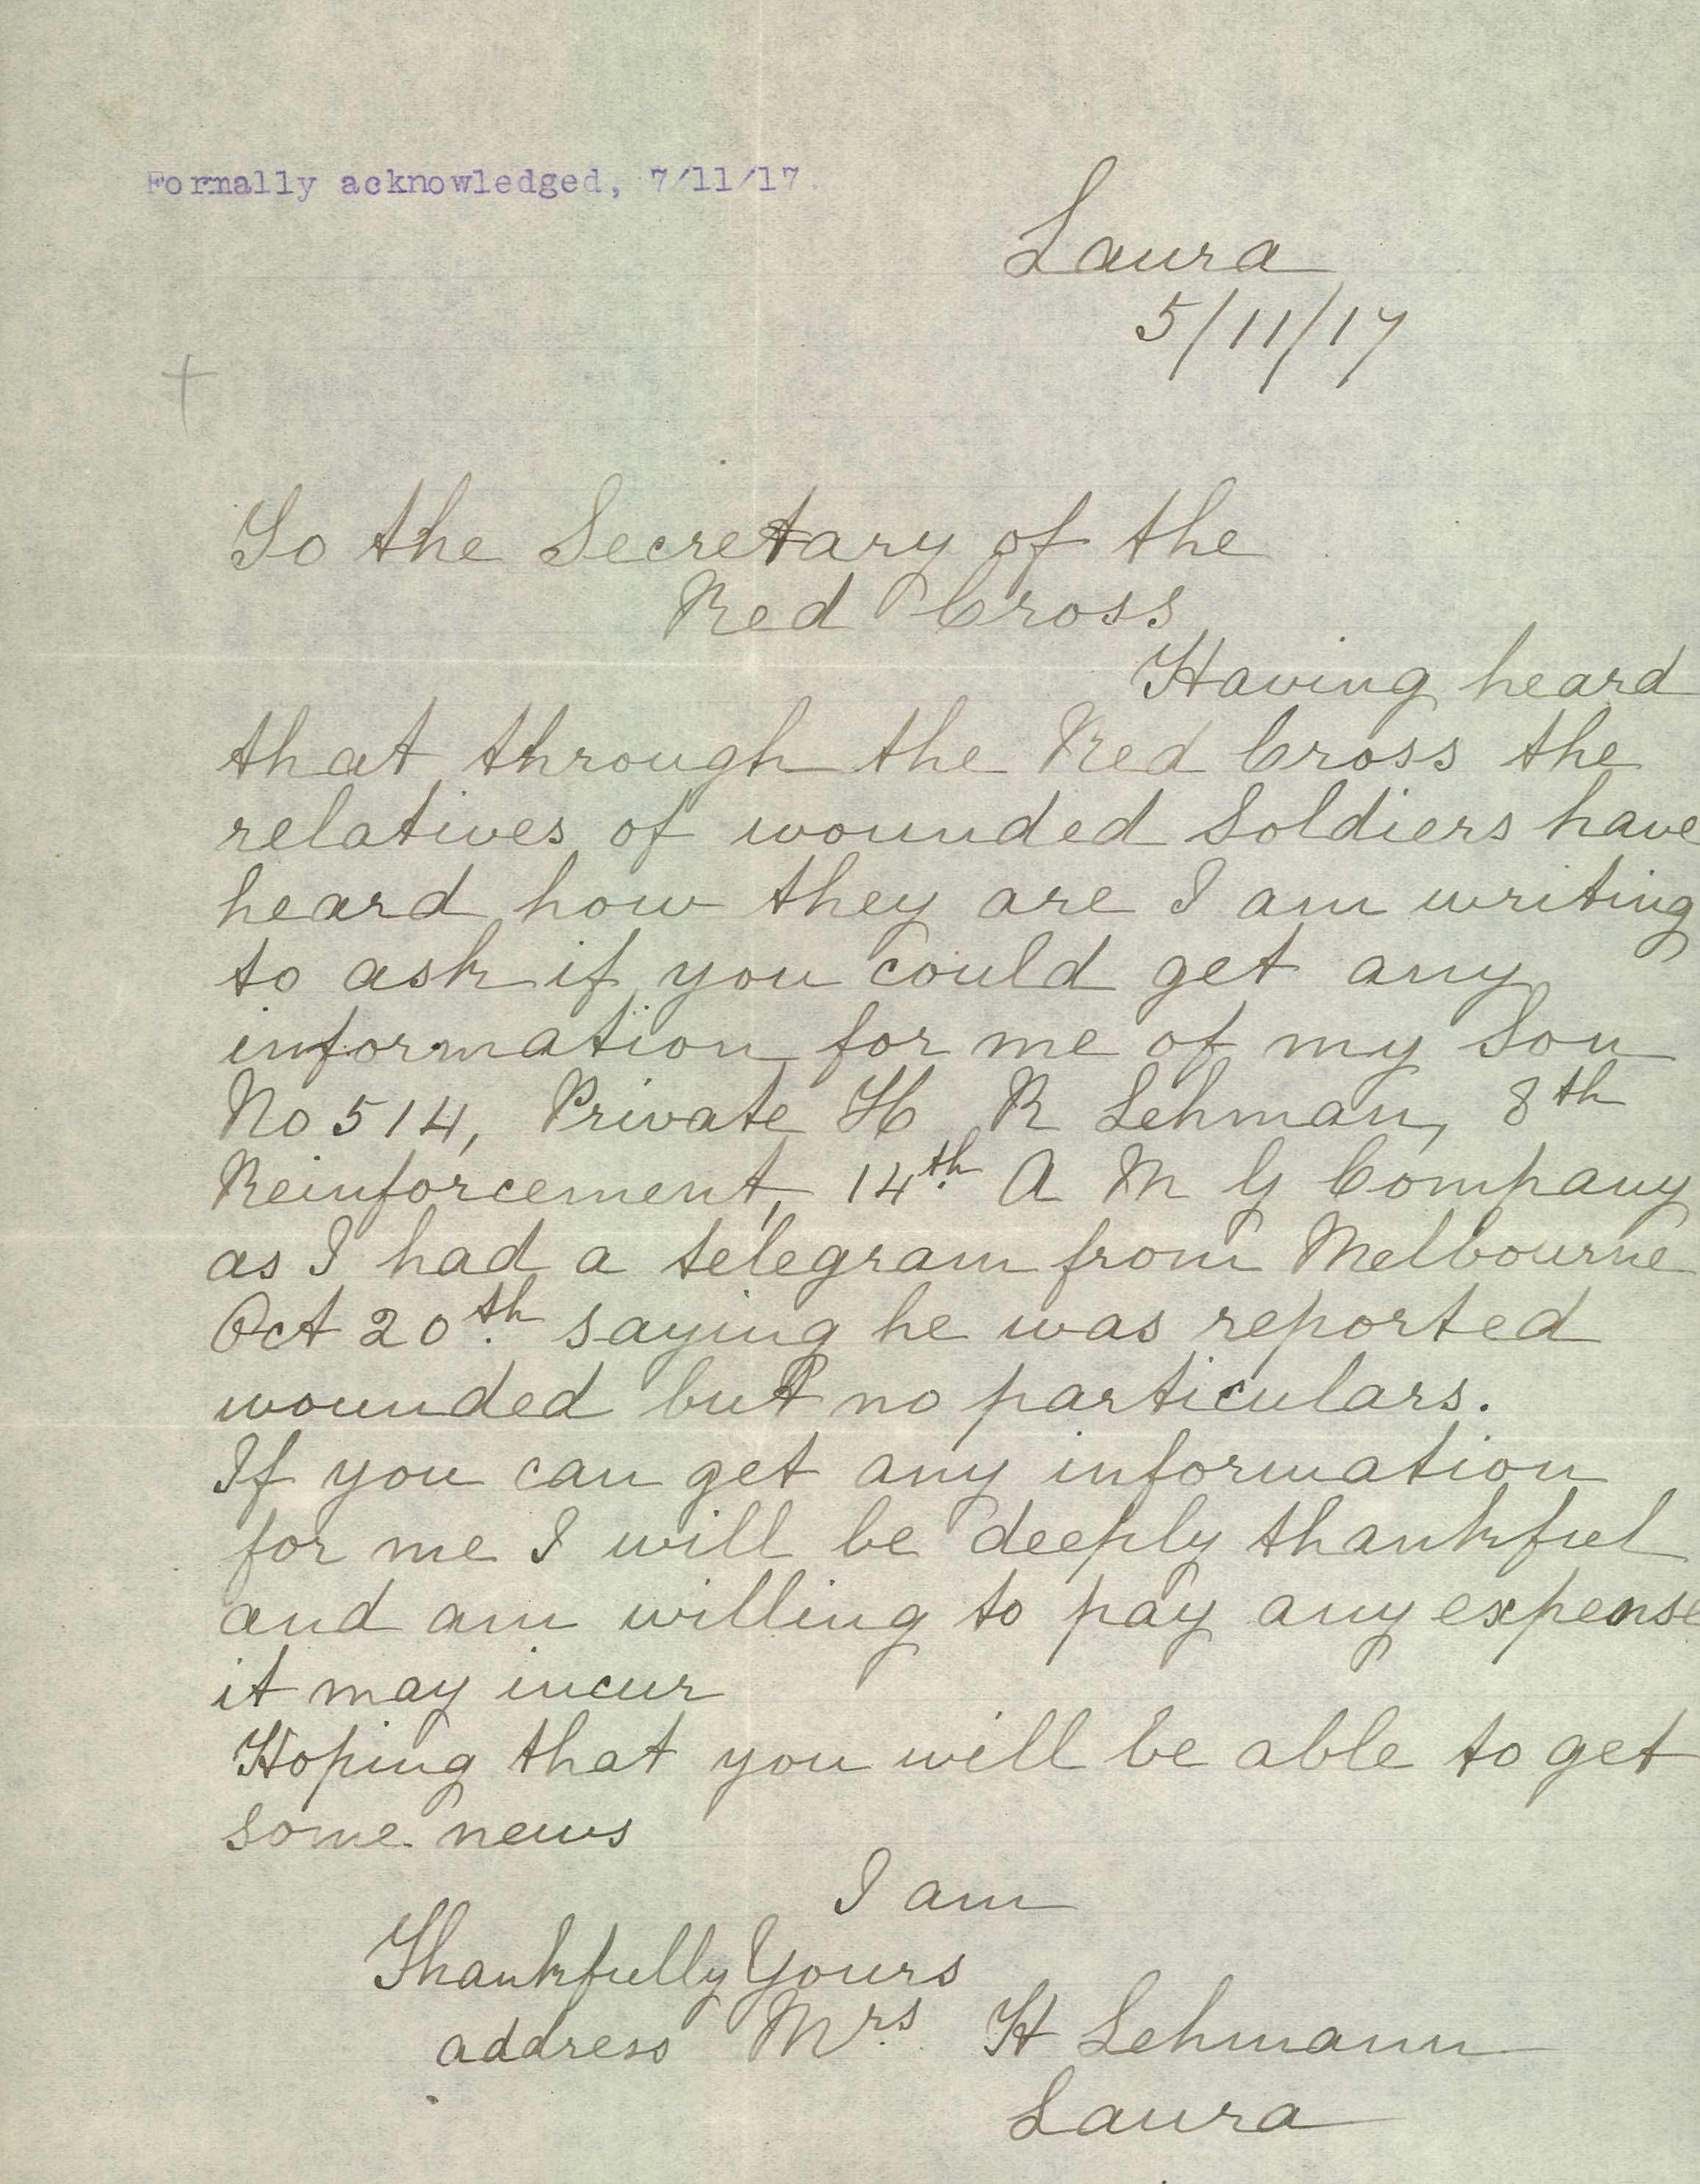 Formally acknowledged, 7/11/17.
Laura
5/11/17
To the Secretary of the
Red Cross
Having heard
that through the Red Cross the
relatives of wounded Soldiers have
heard how they are I am writing
to ask if you could get any
information for me of my Son
No 514, Private H R Lehman, 8th
Reinforcement, 14th A M G Company
as I had a telegram from Melbourne
Oct 20th saying he was reported
wounded but no particulars.
If you can get any information
for me I will be deeply thankful
and am willing to pay any expense
it may incur
Hoping that you will be able to get
some news
I am
Thankfully Yours
address Mrs H Lehmann
Laura